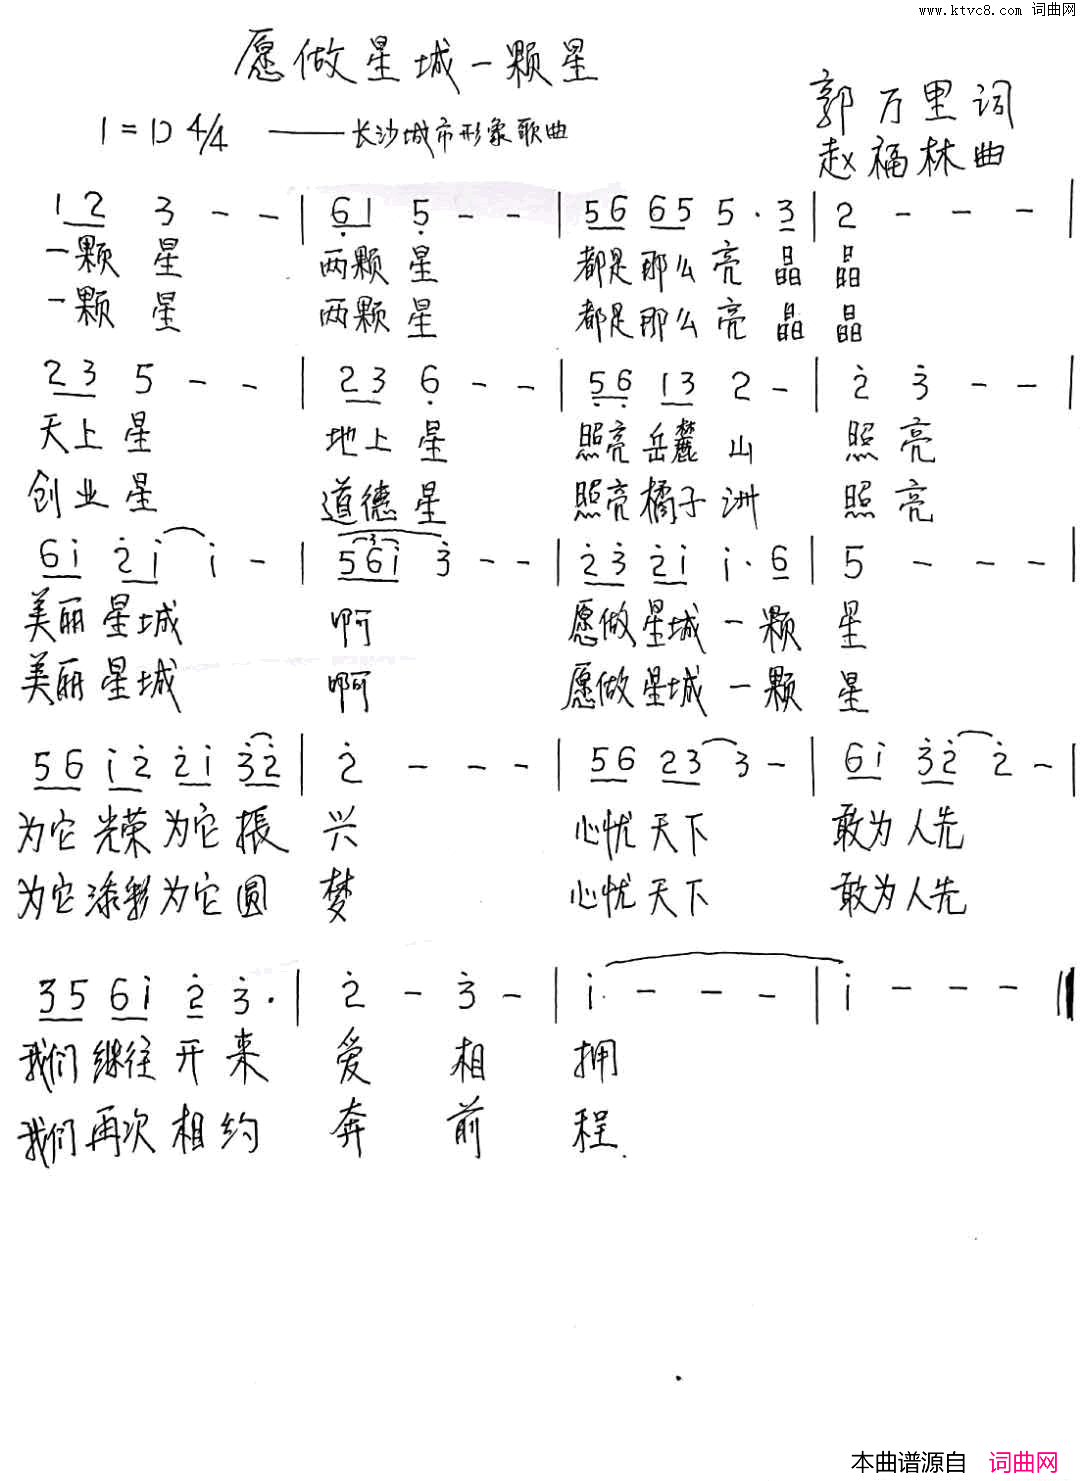 www.ktvc8.com 词曲网
愿做星城一颗星
郭万里词
1=D 4/4 ——长沙城市形象歌曲
赵福林曲
1 2 3 - - | 6 1 5 - - | 5 6 6 5 5 · 3 | 2 - - - |
一颗 星 两颗 星 都是那么 亮 晶 晶
一颗 星 两颗 星 都是那么 亮 晶 晶
2 3 5 - - | 2 3 6 - - | 5 6 1 3 2 - | 2̇ 3̇ - - |
天上 星 地上 星 照亮 岳麓 山 照 亮
创业 星 道德 星 照亮 橘子 洲 照 亮
6 i 2̇ i i - | 5 6 i 3̇ - - | 2̇ 3̇ 2̇ i i · 6 | 5 - - - |
美丽 星城 啊 愿做 星城 一 颗 星
美丽 星城 啊 愿做 星城 一 颗 星
5 6 i 2̇ 2̇ i 3̇ 2̇ | 2̇ - - - | 5 6 2 3 3 - | 6 i 3̇ 2̇ 2̇ - |
为它 光荣 为它 振 兴 心忧 天下 敢为 人先
为它 添彩 为它 圆 梦 心忧 天下 敢为 人先
3 5 6 i 2̇ 3̇ · | 2̇ - 3̇ - | i - - - | i - - - ‖
我们 继往 开 来 爱 相 拥
我们 再次 相 约 奔 前 程
本曲谱源自 词曲网